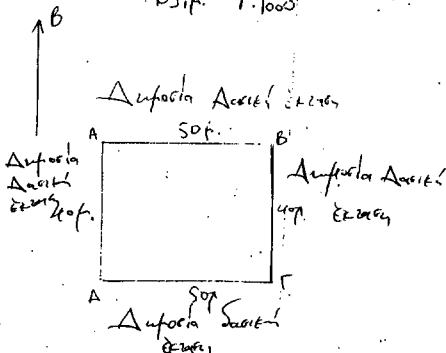 Β
1:1000
Δημοσία Δασική έκταση
50μ.
Α
Β
Δημοσία
Δασική
έκταση
40μ.
Δημοσία Δασική
έκταση
40μ.
Α
50μ
Γ
Δημοσία δασική
έκταση